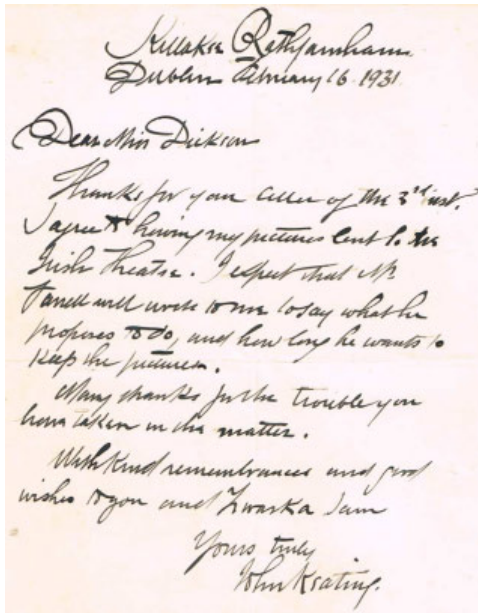 Killakee Rathfarnham
Dublin February 16. 1931
Dear Miss Dickson
Thanks for your letter of the 3rd inst.
I agree to having my pictures lent to the
Irish Theatre. I expect that Mr
will write to me to say what he
proposes to do, and how long he wants to
keep the pictures.
Many thanks for the trouble you
have taken in the matter.
With kind remembrances and good
wishes to you and I am
Yours truly
John Keating.